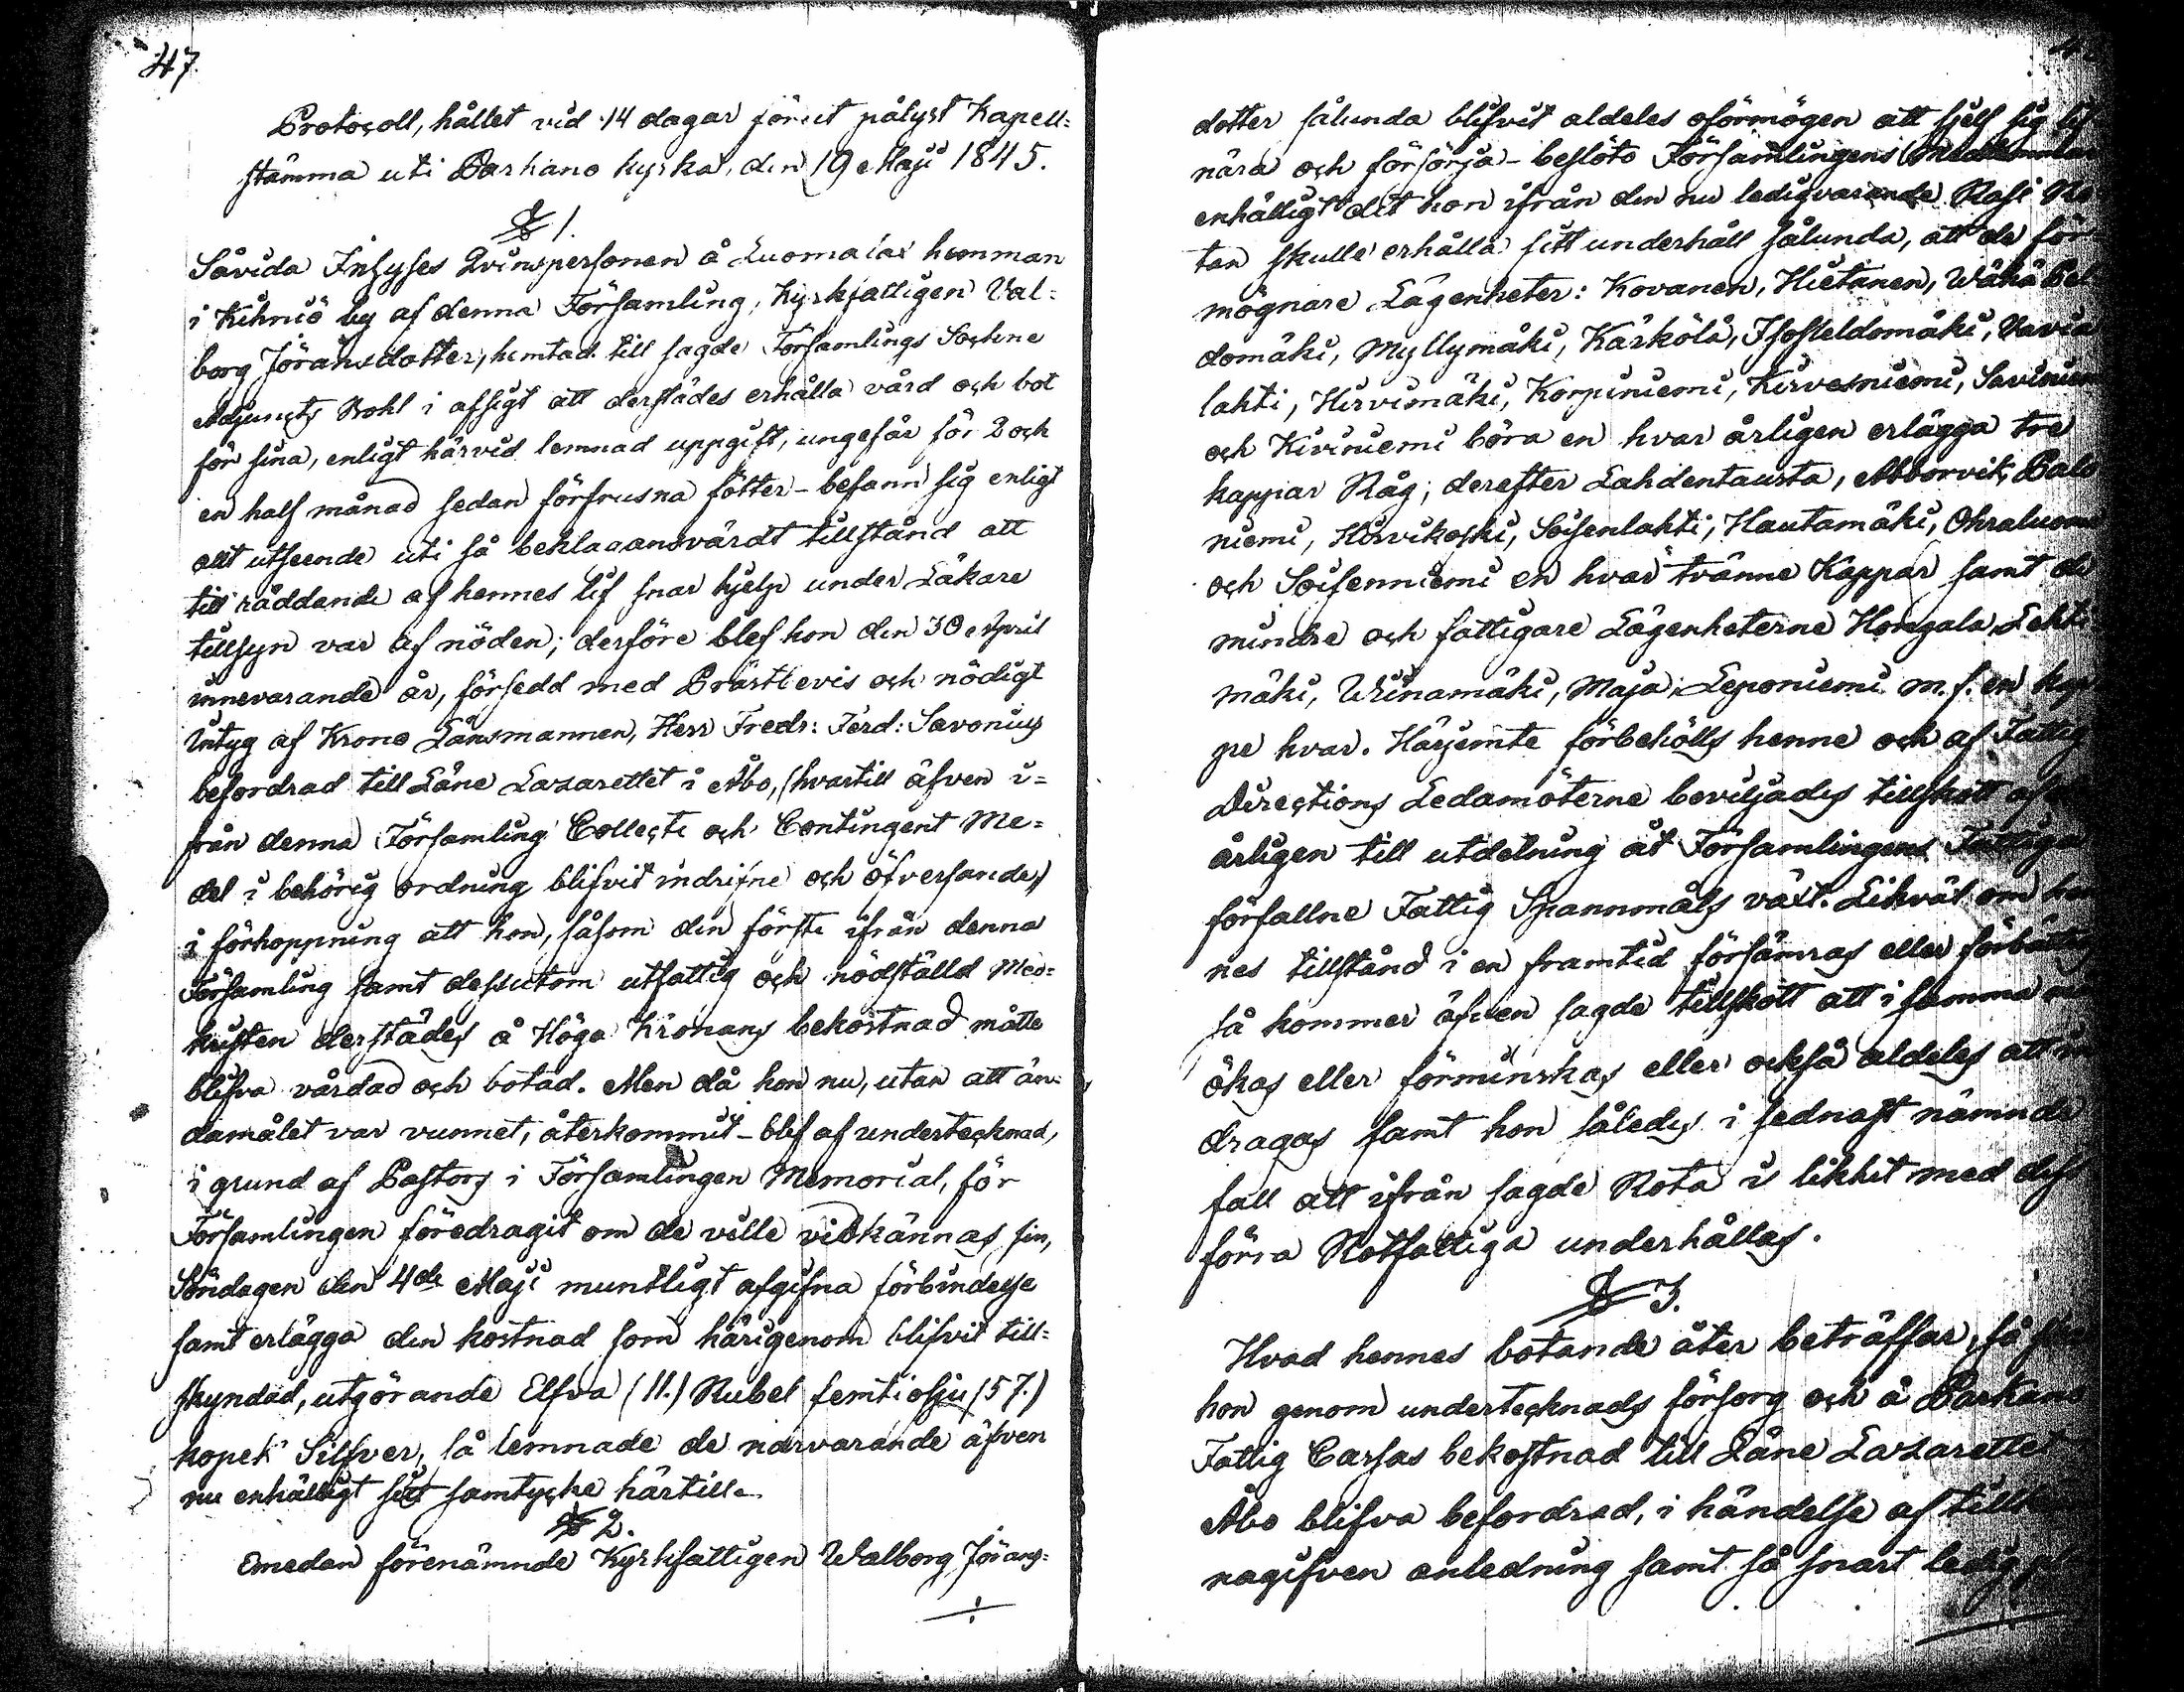 47.
Protocoll, hållet vid 14 dagar förut pålyst Kapell-
stämma uti Parkano kyrka, den 19 Maji 1845.
§ 1.
Såvida Inhyses Qvinspersonen å Luomalax hemman
i Kihniö by af denna Församling, Kyrkfattigen Val-
borg Jöransdotter, hemtad till sagde Församlings Sockne
Adjuncts Bohl i afsigt att derstädes erhålla vård och bot
för sina, enligt härvid lemnad uppgift, ungefär för 2 och
en half månad sedan förfrusna fötter - befann sig enligt
allt utseende uti så beklagansvärdt tillstånd att
till räddande af hennes lif snar hjelp under Läkare
tillsyn var af nöden; derföre blef hon den 30 April
innevarande år, försedd med Prästbevis och nödigt
Intyg af Krono Länsmannen, Herr Fredr: Ferd: Savonius
befordrad till Läne Lazarettet i Åbo, (hvartill äfven i-
från denna Församling Collecte och Contingent Me-
del i behörig ordning blifvit indrifne och öfversande,)
i förhoppning att hon, såsom den förste ifrån denna
Församling samt dessutom utfattig och nödställd Men-
niskan derstädes å Höga Kronans bekostnad måtte
blifva vårdad och botad. Men då hon nu, utan att än-
damålet var vunnet, återkommit - blef af undertecknad,
i grund af Pastors i Församlingen Memorial, för
Församlingen föredragit om de ville vidkännas sin,
Söndagen den 4de Maji muntligt afgifna förbindelse
samt erlägga den kostnad som härigenom blifvit till-
skyndad, utgörande Elfva (11.) Rubel femtiosju (57.)
kopek Silfver, så lemnade de närvarande äfven
nu enhälligt sitt samtycke härtill.
§ 2.
Emedan förenämnde Kyrkfattigen Walborg Jörans-
dotter sålunda blifvit aldeles oförmögen att sjelf sig
nära och försörja - beslöto Församlingens Medlemmar
enhälligt det hon ifrån den nu ledigvarande Rasi Ro
tan skulle erhålla sitt underhåll sålunda, att de för
mögnare Lägenheter: Kovanen, Hietanen, Wähä Pel
domäki, Myllymäki, Kärkölä, Isopeldomäki,
lahti, Hirvimäki, Korpiniemi, Kirvesniemi, Saviniemi
och Kiviniemi böra en hvar årligen erlägga tre
kappar Råg; derefter Lahdentausta, Abborvik, Palo
niemi, Hirvikoski, Soisenlahti, Hautamäki, Ohraluoma
och Soisenniemi en hvar tvänne Kappar samt de
mindre och fattigare Lägenheterne Hongala, Lehti
mäki, Maja, Leponiemi m. f. en kap
pe hvar. Härjemte förbehölls henne och af Fattig
Directions Ledamöterne beviljades tillskott af
årligen till utdelning åt Församlingens Fattiga
förfallne Fattig Spannmåls växt. Likväl om hen
nes tillstånd i en framtid försämras eller förbättras
så kommer äfven sagde tillskott att i samma
ökas eller förminskas eller också aldeles att in
dragas samt hon således i sednast nämnde
fall att ifrån sagde Rota i likhet med dess
förra Rotfattiga underhållas.
§ 3.
Hvad hennes botande åter beträffar, så
hon genom undertecknads försorg och å Parkano
Fattig Cassas bekostnad till Läne Lazarettet
Åbo blifva befordrad, i händelse af
nagifven anledning samt så snart ledig